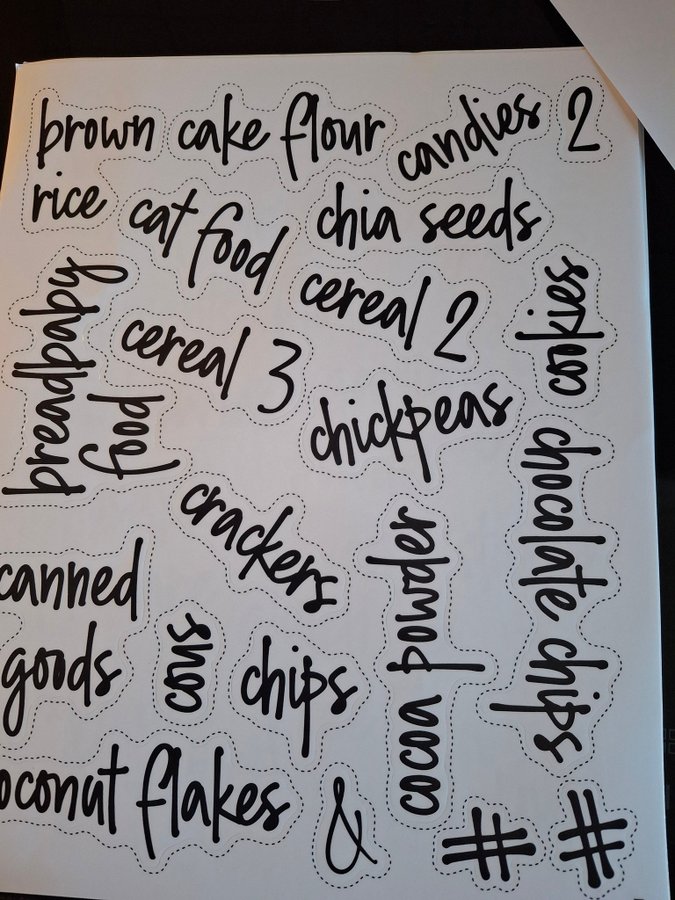 brown cake flour candies 2
rice cat food chia seeds
cereal 2
cookies
breadbaby
food
cereal 3
chickpeas
chocolate chips
crackers
cocoa powder
canned
goods
cons
chips
oconut flakes
&
#
#